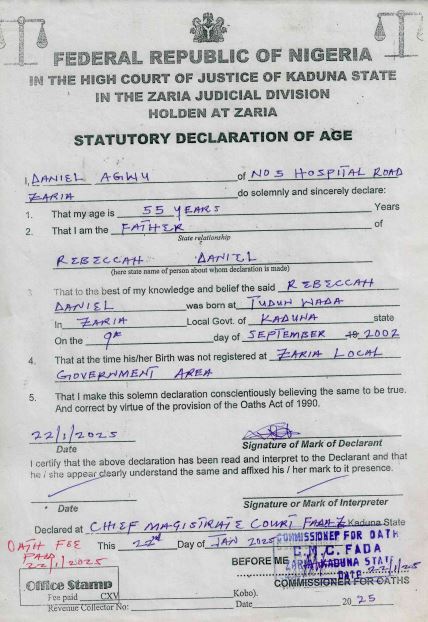 FEDERAL REPUBLIC OF NIGERIA
IN THE HIGH COURT OF JUSTICE OF KADUNA STATE
IN THE ZARIA JUDICIAL DIVISION
HOLDEN AT ZARIA
STATUTORY DECLARATION OF AGE
I, DANIEL AGWU of NO 5 HOSPITAL ROAD
ZARIA do solemnly and sincerely declare:
1. That my age is 55 YEARS Years
2. That I am the FATHER of
State relationship
REBECCAH DANIEL
(here state name of person about whom declaration is made)
3 That to the best of my knowledge and belief the said REBECCAH
DANIEL was born at TUDUN WADA
In ZARIA Local Govt. of KADUNA state
On the 9th day of SEPTEMBER 19 2002
4. That at the time his/her Birth was not registered at ZARIA LOCAL
GOVERNMENT AREA
5. That I make this solemn declaration conscientiously believing the same to be true.
And correct by virtue of the provision of the Oaths Act of 1990.
22/1/2025
Date Signature of Mark of Declarant
I certify that the above declaration has been read and interpret to the Declarant and that
he / she appear clearly understand the same and affixed his / her mark to it presence.
Date Signature or Mark of Interpreter
Declared at CHIEF MAGISTRATE COURT FADA Z Kaduna State
OATH FEE This 22nd Day of JAN 2025
PAID
22/1/2025
COMMISSIONER FOR OATH
C.M.C. FADA
BEFORE ME ZARIA KADUNA STATE
DATE 22/1/25
COMMISSIONER FOR OATHS
Office Stamp
Fee paid CXV Kobo). Date 20 25
Revenue Collector No: